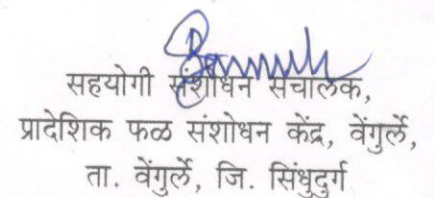 सहयोगी संशोधन संचालक,
प्रादेशिक फळ संशोधन केंद्र, वेंगुर्ले,
ता. वेंगुर्ले, जि. सिंधुदुर्ग